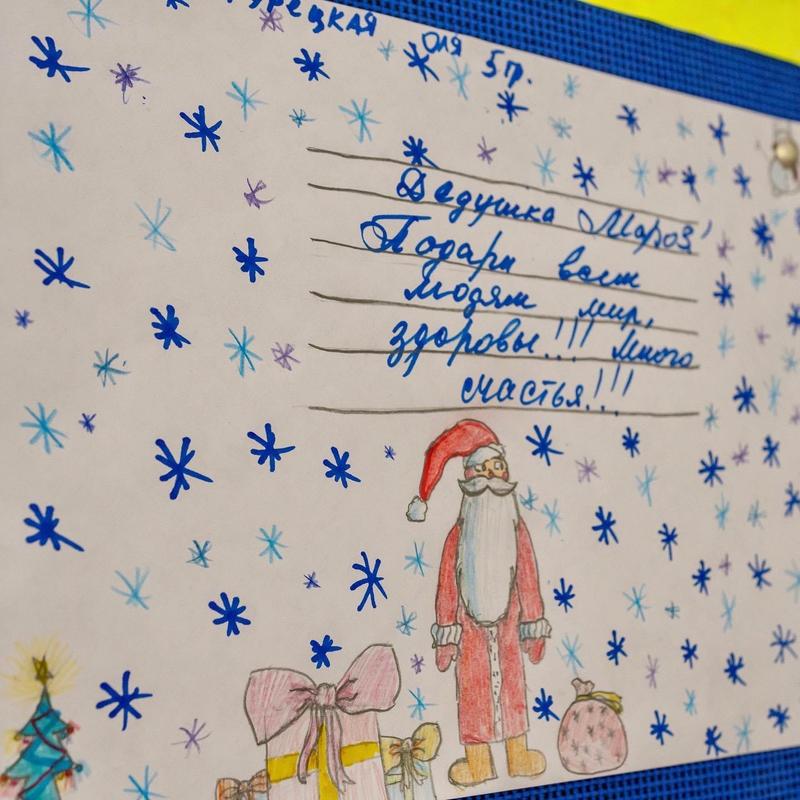 Оля 5гр.
Дедушка Мароз!
Подари всем
людям мир,
здоровье!!! Много
счастья!!!